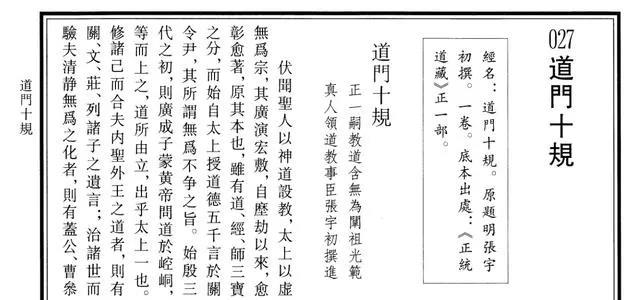 027 道門十規
經名：道門十規。原題明張宇
初撰。一卷。底本出處：《正統
道藏》正一部。
道門十規
正一嗣教道合無為闡祖光範
真人領道教事臣張宇初撰進
伏聞聖人以神道設教，太上以虛
無爲宗，其廣演宏敷，自歷劫以來，愈
彰愈著，原其本也，雖有道、經、師三寶
之分，而始自太上授道德五千言於關
令尹，其所謂無爲不争之旨。始殷三
代之初，則廣成子蒙黃帝問道於崆峒，
等而上之，道所由立，出乎太上一也。
修諸己而合夫内聖外王之道者，則有
關、文、莊、列諸子之遺言；治諸世而
驗夫清静無爲之化者，則有蓋公、曹參
道門十規